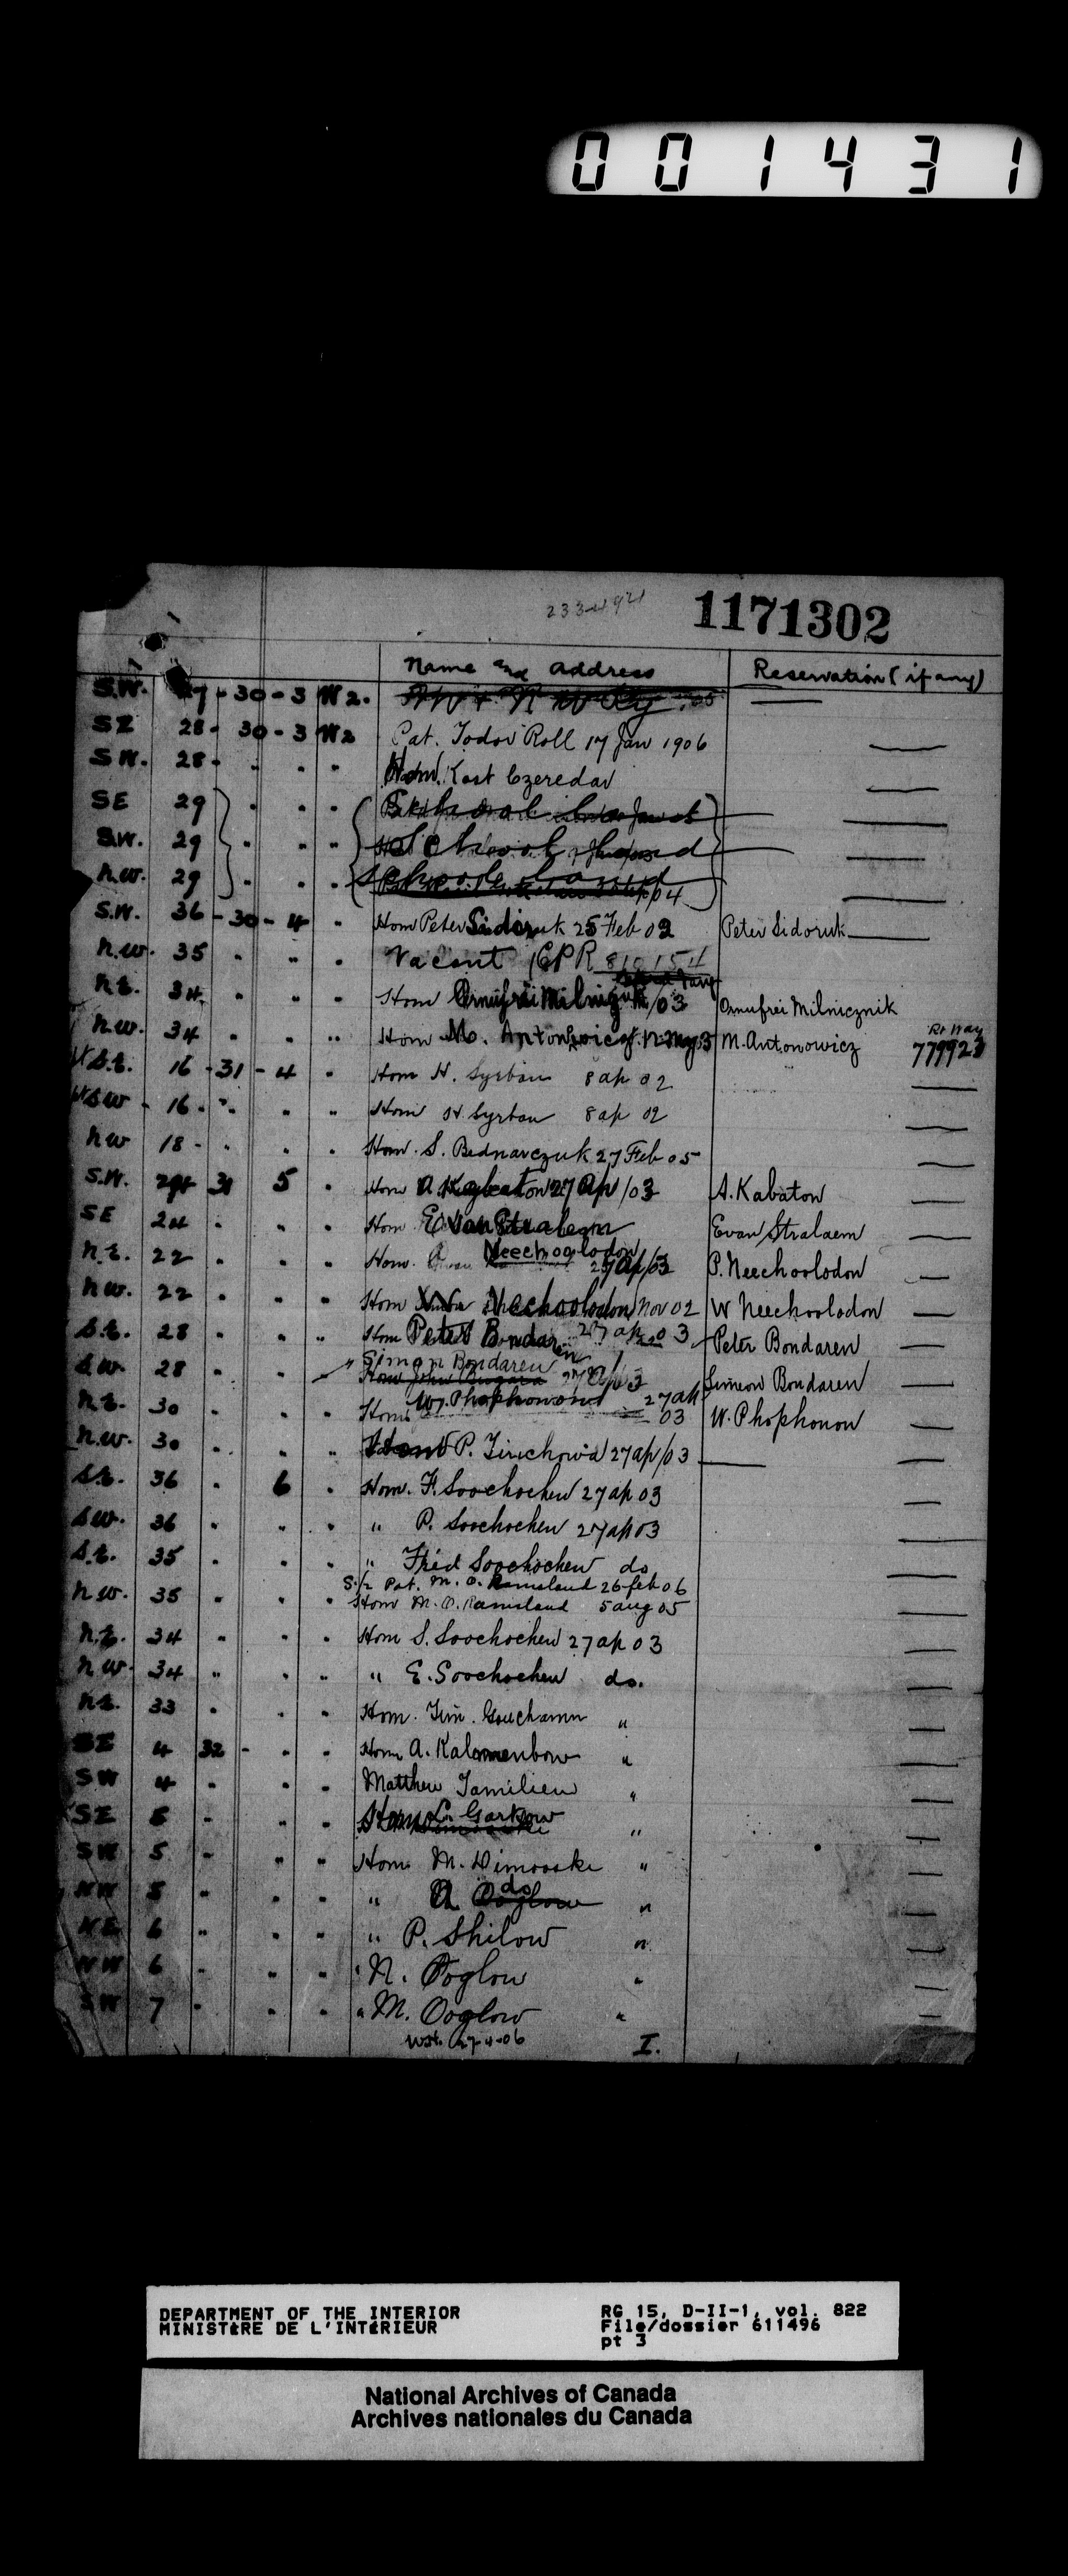 001431
233-4921
1171302
Name and address Reservation (if any)
S.W. 27 - 30 - 3 W2.
SE 28 - 30 - 3 W2 Pat. Todor Roll 17 Jan 1906
S.W. 28 - " " " Hom. Kost Czeredar
SE 29 " " "
S.W. 29 " " " School Land
N.W. 29 " " " School Land
S.W. 36 - 30 - 4 " Hom Peter Sidoruk 25 Feb 02 Peter Sidoruk
N.W. 35 " " " Vacant CPR 810154
N.E. 34 " " " Hom /03 Onufrei Milnicznik
N.W. 34 " " " Hom M. Antonowicz M. Antonowicz Rt Way 779923
S.E. 16 - 31 - 4 " Hom H. Syrban 8 ap 02
SW - 16 - " " " Hom H. Syrban 8 ap 02
NW 18 - " " " Hom. S. Bednarczuk 27 Feb 05
S.W. 31 5 " Hom A. Kabaton 27 Ap/03 A. Kabaton
SE 24 " " " Hom Evan Stralaem Evan Stralaem
N.E. 22 " " " Hom. Neechoolodon 27 Ap/03 P. Neechoolodon
NW. 22 " " " Hom Nechoolodon Nov 02 W Neechoolodon
S.E. 28 " " " Hom Peter Bondaren 27 ap 03 Peter Bondaren
S.W. 28 " " " " Simon Bondaren 27 Ap/03 Simeon Bondaren
N.E. 30 " " " Hom W. Phophonon 27 ap 03 W. Phophonon
N.W. 30 " " " Hom P. 27 ap/03
S.E. 36 " 6 " Hom. F. Soochochew 27 ap 03
SW. 36 " " " " P. Soochochew 27 ap 03
S.E. 35 " " " " Fred Soochochew do
S. 1/2 Pat. M. O. Ramsland 26 feb 06
N.W. 35 " " " Hom M. O. Ramsland 5 aug 05
N.E. 34 " " " Hom S. Soochochew 27 ap 03
NW 34 " " " " E. Soochochew do.
N.E. 33 " " " Hom. Tim. "
SE 4 32 - " " Hom A. "
SW 4 " " " Matthew "
SE 5 " " " Hom "
SW 5 " " " Hom M. "
NW 5 " " " " do "
NE 6 " " " " P. Shilow "
NW 6 " " " " N. Ooglow "
SW 7 " " " " M. Ooglow "
27-4-06 I.
DEPARTMENT OF THE INTERIOR
MINISTÈRE DE L'INTÉRIEUR
RG 15, D-II-1, vol. 822
File/dossier 611496
pt 3
National Archives of Canada
Archives nationales du Canada